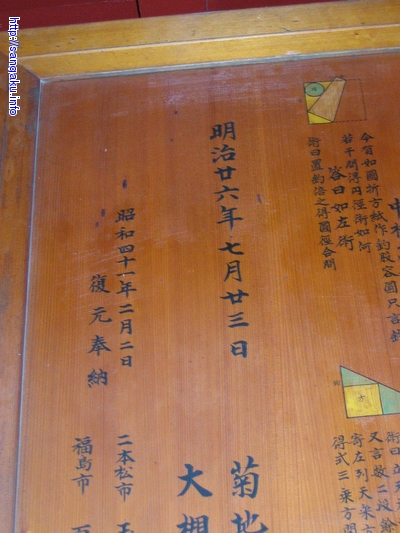 https://sangaku.info
中村
今有如圖折方紙作鈎股容圓只言鈎
若干問得円徑術如何
答曰如左術
術曰置鈎倍之得圓徑合問
明治廿六年七月廿三日
昭和四十一年二月二日
復元奉納
又言
寄左列天
得式三乗方
菊地
大棚
二本松市
福島市